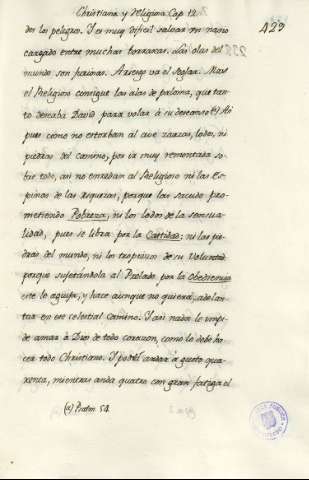 Christiana y Religiosa Cap. 12.
429
dos los peligros. Y es muy dificil salvar un navio
cargado entre muchas borrascas. Las olas del
mundo son furiosas. A riesgo va el Seglar. Mas
el Religioso consigue las alas de paloma, que tan-
to deseaba David para volar à su descanso (a) Asi
pues como no estorban al ave zarzas, lodos, ni
piedras del camino, por ir muy remontada so-
bre todo, asi no enredan al Religioso ni las Es-
pinas de las riquezas, porque las sacude pro-
metiendo Pobreza; ni los lodos de la sensua-
lidad, pues se libra por la Castidad: ni las pie-
dras del mundo, ni los tropiezos de su Voluntad
porque sujetandola al Prelado por la Obediencia
este lo aguija, y hace aunque no quiera, adelan-
tar en este celestial camino. Y asi nada le impi-
de amar à Dios de todo corazon, como lo debe ha-
cer todo Christiano. Y podrá andar à gusto qua-
renta, mientras anda quatro con gran fatiga el
(a) Psalm 54.